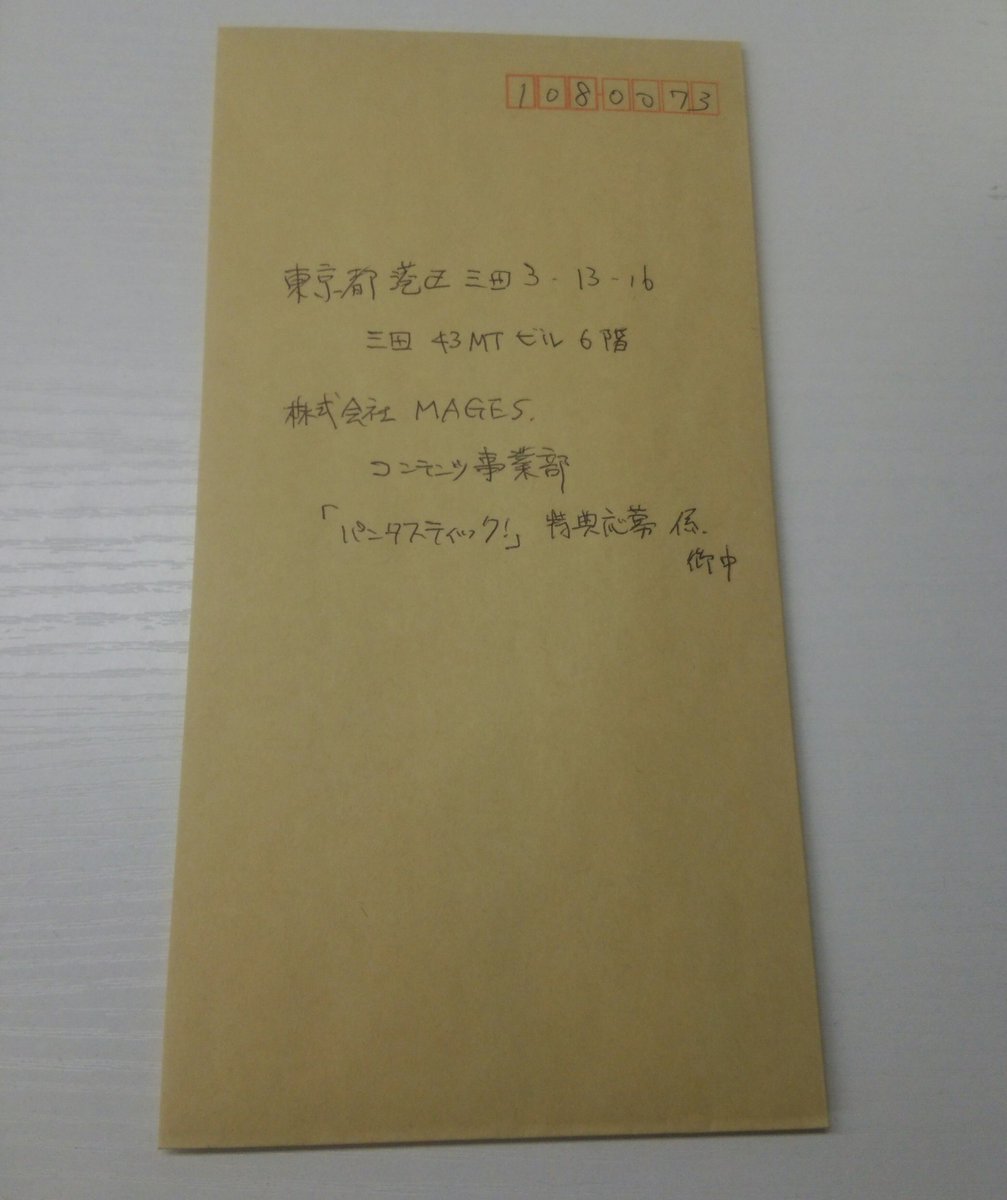 1080073
東京都港区三田3-13-16
三田43MTビル6階
株式会社MAGES.
コンテンツ事業部
「パンタスティック!」特典応募係.
御中